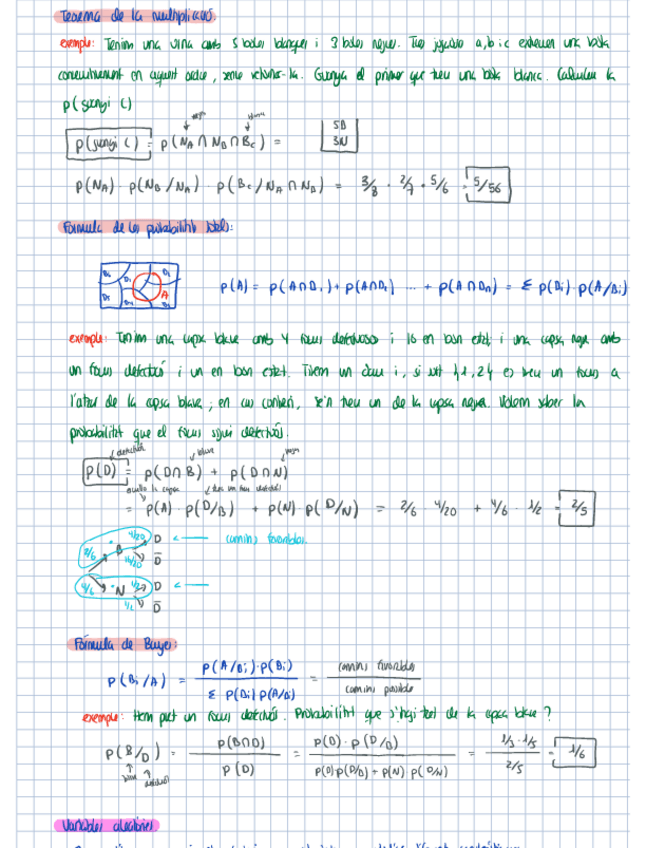 Teorema de la multiplicació.
exemple: Tenim una urna amb 5 boles blanques i 3 boles negres. Tres jugadors a, b i c extreuen una bola
consecutivament en aquest ordre, sense retornar-la. Guanya el primer que treu una bola blanca. Calculeu la
p(guanyi C)
negra blanca
p(guanyi C) = p(N_A ∩ N_B ∩ B_C) =
5B
3N
p(N_A) · p(N_B/N_A) · p(B_C/N_A ∩ N_B) = 3/8 · 2/7 · 5/6 = 5/56
Fórmula de les probabilitats totals:
A
p(A) = p(A∩D_1) + p(A∩D_2) ... + p(A∩D_n) = Σ p(D_i) · p(A/B_i)
exemple: Tenim una capsa blava amb 4 focus defectuosos i 16 en bon estat, i una capsa negra amb
un focus defectuós i un en bon estat. Tirem un dau i, si surt {1,2} es treu un focus a
l'atzar de la capsa blava; en cas contrari, se'n treu un de la capsa negra. Volem saber la
probabilitat que el focus sigui defectuós.
defectuós blava negra
p(D) = p(D∩B) + p(D∩N)
= p(A) p(D/B) + p(N) p(D/N) = 2/6 · 4/20 + 4/6 · 1/2 = 2/5
2/6 B 4/20 D ← camins favorables
16/20 D̄
4/6 N 1/2 D ←
1/2 D̄
Fórmula de Bayes:
p(B_i/A) = p(A/B_i)·p(B_i) / Σ p(B_i) p(A/B_i) = camins favorables / camins possibles
exemple: Hem tret un focus defectuós. Probabilitat que s'hagi tret de la capsa blava?
p(B/D) = p(B∩D) / p(D) = p(B)·p(D/B) / p(B)·p(D/B) + p(N)·p(D/N) = 1/3 · 1/5 / 2/5 = 1/6
blava defectuós
Variables aleatòries